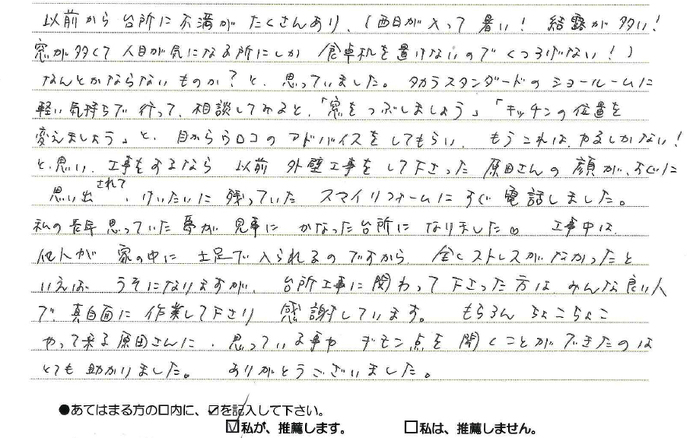 以前から台所に不満がたくさんあり、(西日が入って暑い! 結露が多い!
窓が多くて人目が気になる所にしか食卓机を置けないのでくつろげない!)
なんとかならないものか?と、思っていました。タカラスタンダードのショールームに
軽い気持ちで行って、相談してみると、「窓をつぶしましょう」「キッチンの位置を
変えましょう」と、目からウロコのアドバイスをしてもらい、もうこれは、やるしかない!
と思い、工事をするなら以前外壁工事をして下さった原田さんの顔が、すぐに
思い出されて、けいたいに残っていたスマイリフォームにすぐ電話しました。
私の長年思っていた夢が見事にかなった台所になりました♡ 工事中は
他人が家の中に土足で入られるのですから、全くストレスがなかったと
いえば、うそになりますが、台所工事に関わって下さった方はみんな良い人
で、真面目に作業して下さり感謝しています。もちろんちょこちょこ
やって来る原田さんに、思っている事やギモン点を聞くことができたのは
とても助かりました。ありがとうございました。
●あてはまる方の口内に、☑を記入して下さい。
☑私が、推薦します。 □私は、推薦しません。